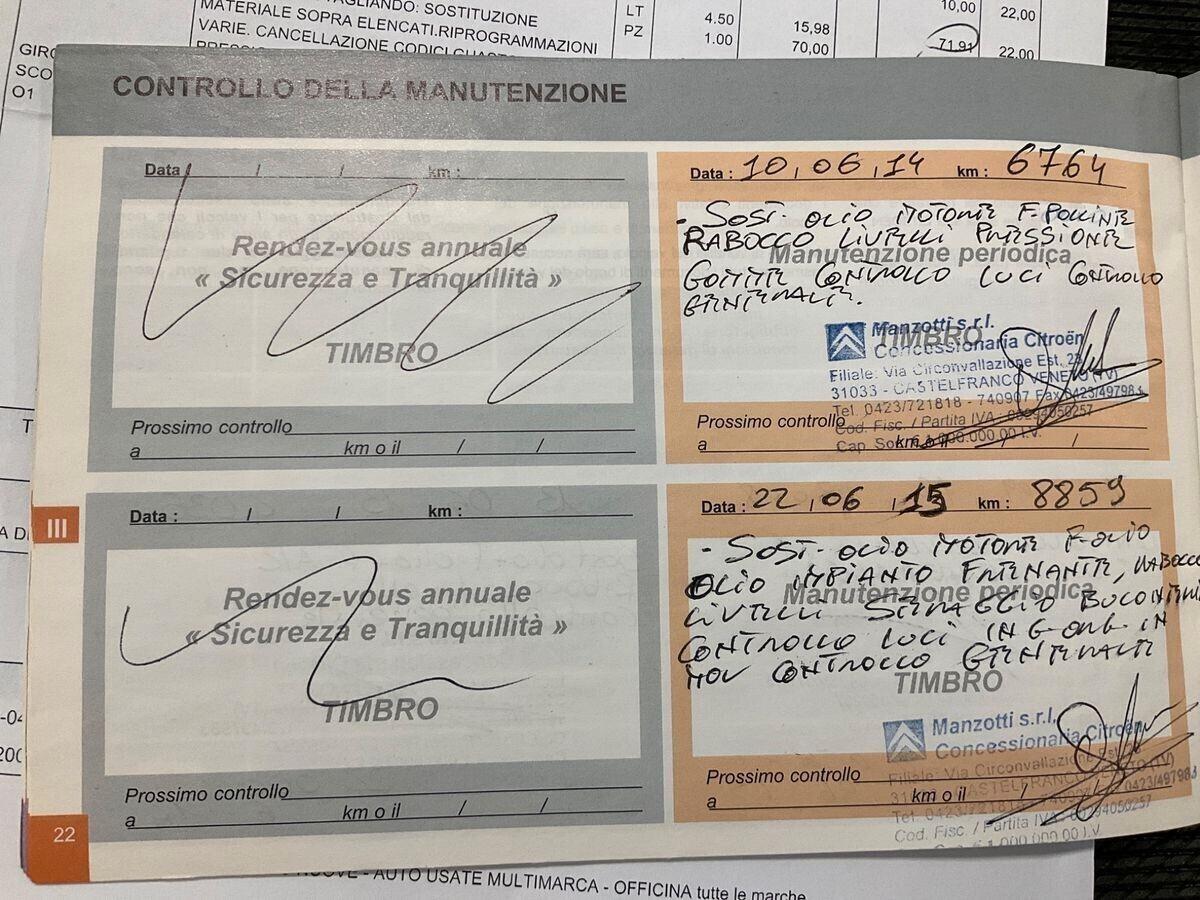 TAGLIANDO: SOSTITUZIONE
MATERIALE SOPRA ELENCATI.RIPROGRAMMAZIONI
VARIE. CANCELLAZIONE CODICI GUASTO
LT 4.50 15,98 10,00 22,00
PZ 1.00 70,00 71,91 22,00
GIRO
SCO
O1
CONTROLLO DELLA MANUTENZIONE
Data / / km :
Rendez-vous annuale
« Sicurezza e Tranquillità »
TIMBRO
Prossimo controllo
a km o il / /
Data : 10,06,14 km : 6764
- SOST. OLIO MOTORE F. POLLINE
RABOCCO LIVELLI PRESSIONE
Manutenzione periodica
GOMME CONTROLLO LUCI CONTROLLO
GENERALE.
TIMBRO
Manzotti s.r.l.
Concessionaria Citroën
Filiale: Via Circonvallazione Est, 23
31033 - CASTELFRANCO VENETO (TV)
Tel. 0423/721818 - 740907 Fax 0423/497984
Cod. Fisc. / Partita IVA : 00294050257
Cap. Soc. € 1.000.000,00 I.V.
Prossimo controllo
a km o il / /
III
Data : / / km :
Rendez-vous annuale
« Sicurezza e Tranquillità »
TIMBRO
Prossimo controllo
a km o il / /
Data : 22,06,15 km : 8859
- SOST. OLIO MOTORE F. OLIO
OLIO IMPIANTO FRENANTE, RABOCCO
Manutenzione periodica
LIVELLI SERRAGGIO BULONERIA
CONTROLLO LUCI INGOMB IN
MOV CONTROLLO GENERALE
TIMBRO
Manzotti s.r.l.
Concessionaria Citroën
Filiale: Via Circonvallazione Est,
CASTELFRANCO VENETO (TV)
Tel. 0423/721818 - 740907 0423/497984
Cod. Fisc. / Partita IVA : 00294050257
1.000.000,00 I.V.
Prossimo controllo
a km o il /
22
AUTO USATE MULTIMARCA - OFFICINA tutte le marche